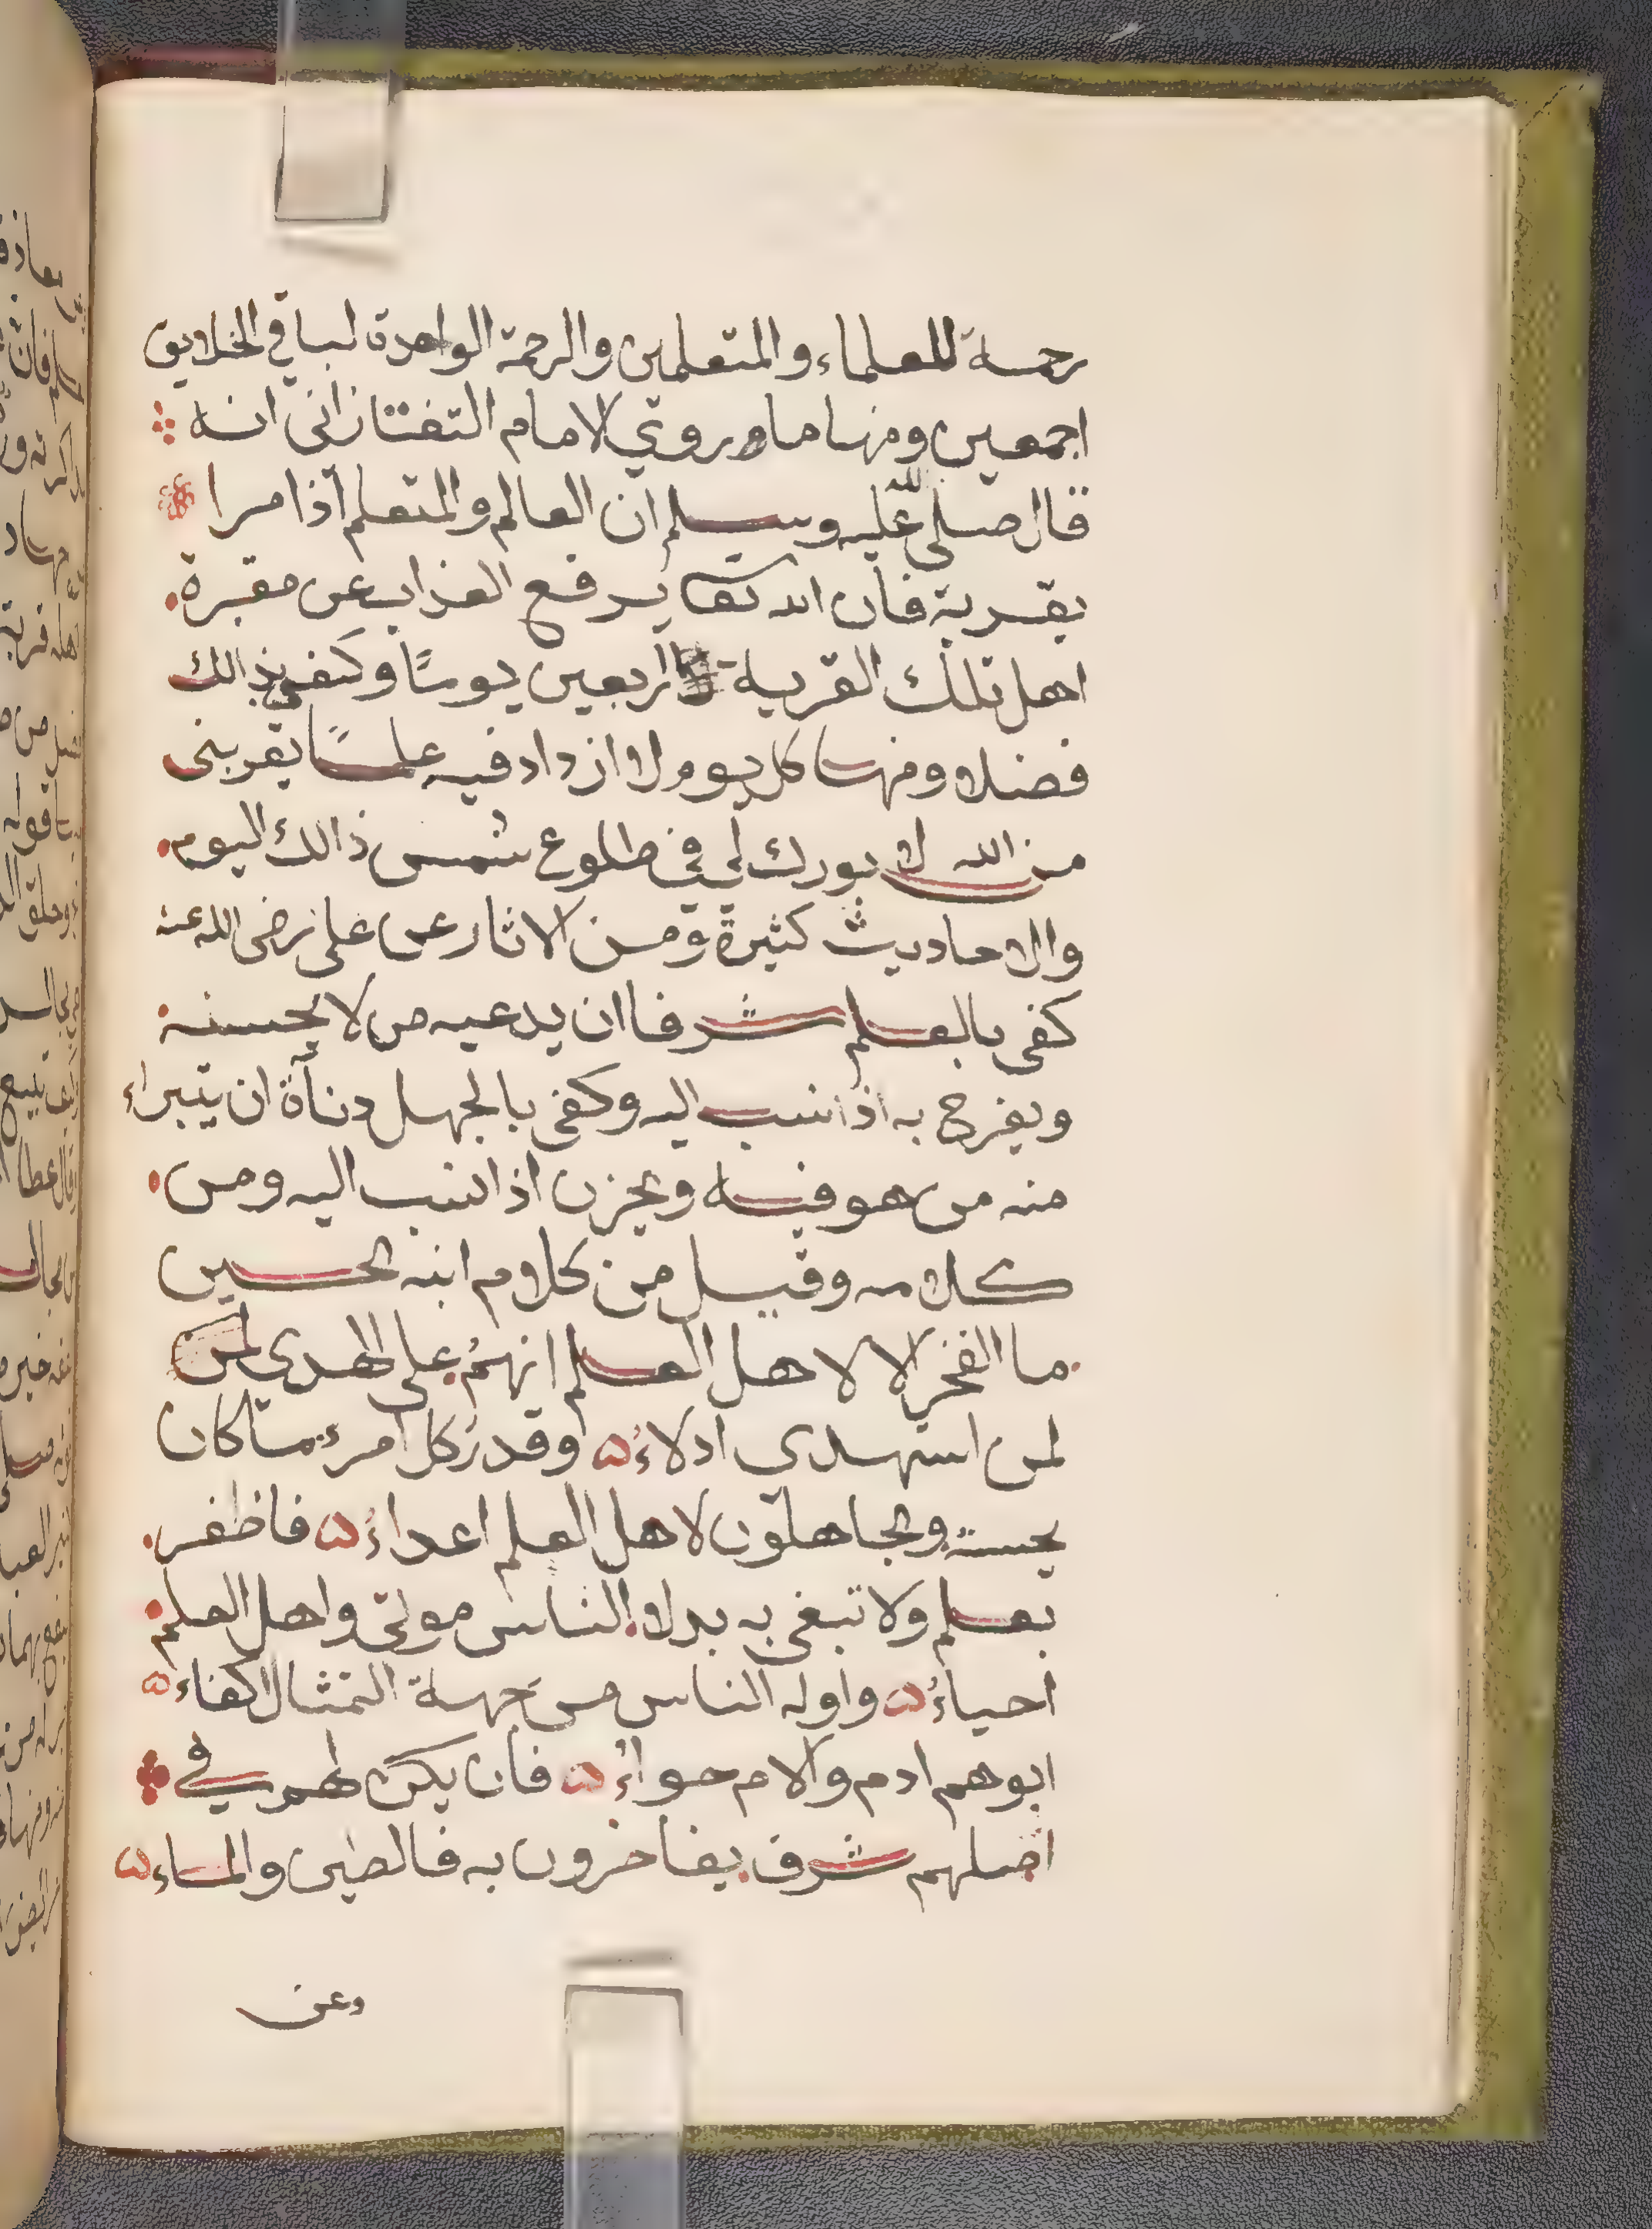 رحمة للعلماء والمتعلمين والرحمة الواحدة لباقي الخلايق
اجمعين ومنها ما روي لامام التفتازاني انه
قال صلى الله عليه وسلم ان العالم والمتعلم أذا مرا
بقرية فان الله تعا يرفع العذاب عن مقبرة
اهل تلك القرية اربعين يومًا وكفى بذالك
فضلا ومنها كل يوم لا ازداد فيه علمًا يقربنى
من الله لا بورك لي في طلوع شمس ذالك اليوم
والاحاديث كثيرة ومن الاثار عن على رضى الله عنه
كفى بالعلم شرفا ان يدعيه من لا يحسنه
ويفرح به اذا نسب اليه وكفى بالجهل دنأة ان يتبراء
منه من هو فيه ويحزن اذا نسب اليه ومن
كلامه وقيل من كلام ابنه الحسين
ما الفخر الا لاهل العلم انهم على الهدى لمن
لمن استهدى ادلاءُ وقدر كل امرء ما كان
يحسنه والجاهلون لاهل العلم اعداءُ فاظفر
بعلم ولا تبغى به بدلا الناس موتى واهل العلم
احياءُ واوله الناس من جهة التمثال اكفاء
ابوهم ادم والام حواءُ فان يكن لهم في
اصلهم شرف يفاخرون به فالطين والماء
وعن